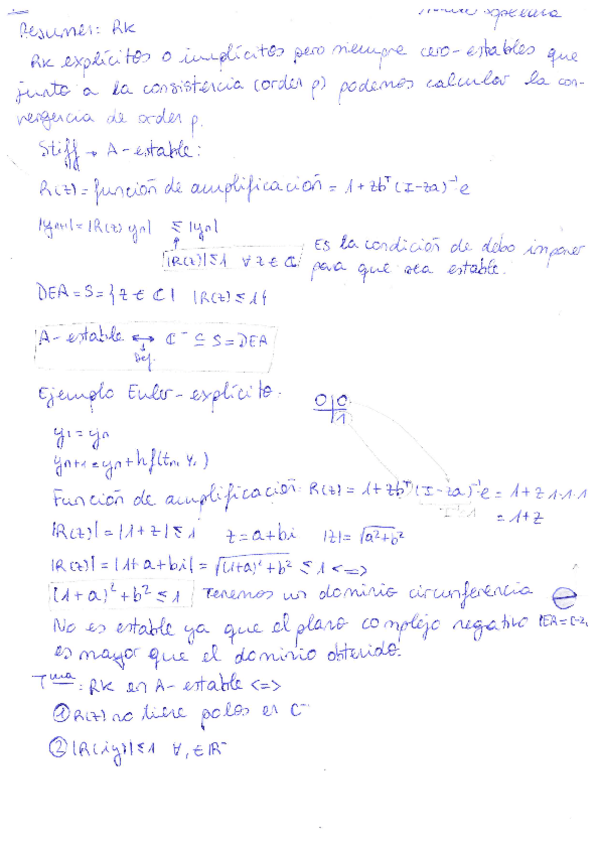 Resumen: RK
RK explícitos o implícitos pero siempre cero-estables que
junto a la consistencia (orden p) podemos calcular la con-
vergencia de orden p.
Stiff → A-estable:
R(z) = función de amplificación = 1+zbᵀ(I-za)⁻¹e
|yn+1| = |R(z) yn| ≤ |yn|
|R(z)| ≤ 1 ∀ z ∈ ℂ
Es la condición de debo imponer
para que sea estable.
DEA = S = {z ∈ ℂ | |R(z)| ≤ 1}
A-estable ↔ ℂ⁻ ⊆ S = DEA
Def.
Ejemplo Euler-explícito.
0|0
|1
y1 = yn
yn+1 = yn + hf(tn, Y1)
Función de amplificación: R(z) = 1+zbᵀ(I-za)⁻¹e = 1+z·1·1·1
= 1+z
|R(z)| = |1+z| ≤ 1 z = a+bi |z| = √a²+b²
|R(z)| = |1+a+bi| = √(1+a)²+b² ≤ 1 <=>
(1+a)²+b² ≤ 1 Tenemos un dominio circunferencia
No es estable ya que el plano complejo negativo
es mayor que el dominio obtenido.
Tma: RK es A-estable <=>
① R(z) no tiene polos en ℂ⁻
② |R(iy)| ≤ 1